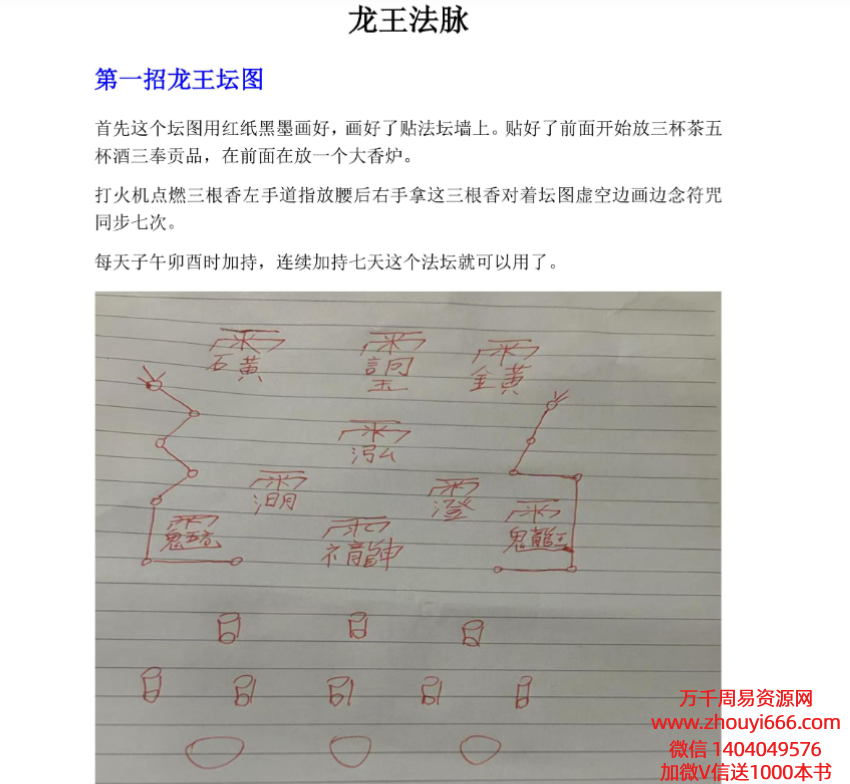 龙王法脉
第一招龙王坛图
首先这个坛图用红纸黑墨画好，画好了贴法坛墙上。贴好了前面开始放三杯茶五
杯酒三奉贡品，在前面在放一个大香炉。
打火机点燃三根香左手道指放腰后右手拿这三根香对着坛图虚空边画边念符咒
同步七次。
每天子午卯酉时加持，连续加持七天这个法坛就可以用了。
石黄
金黄
泓
澄
万千周易资源网
www.zhouyi666.com
微信 1404049576
加微V信送1000本书